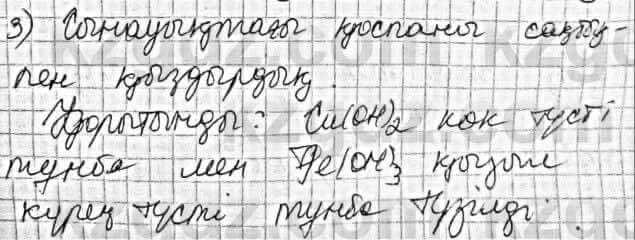 3) Сынауықтағы қоспаны сақтық-
пен қыздырдық.
Қорытынды: Cu(OH)₂ көк түсті
тұнба мен Fe(OH)₃ қызыл
күрең түсті тұнба түзілді.